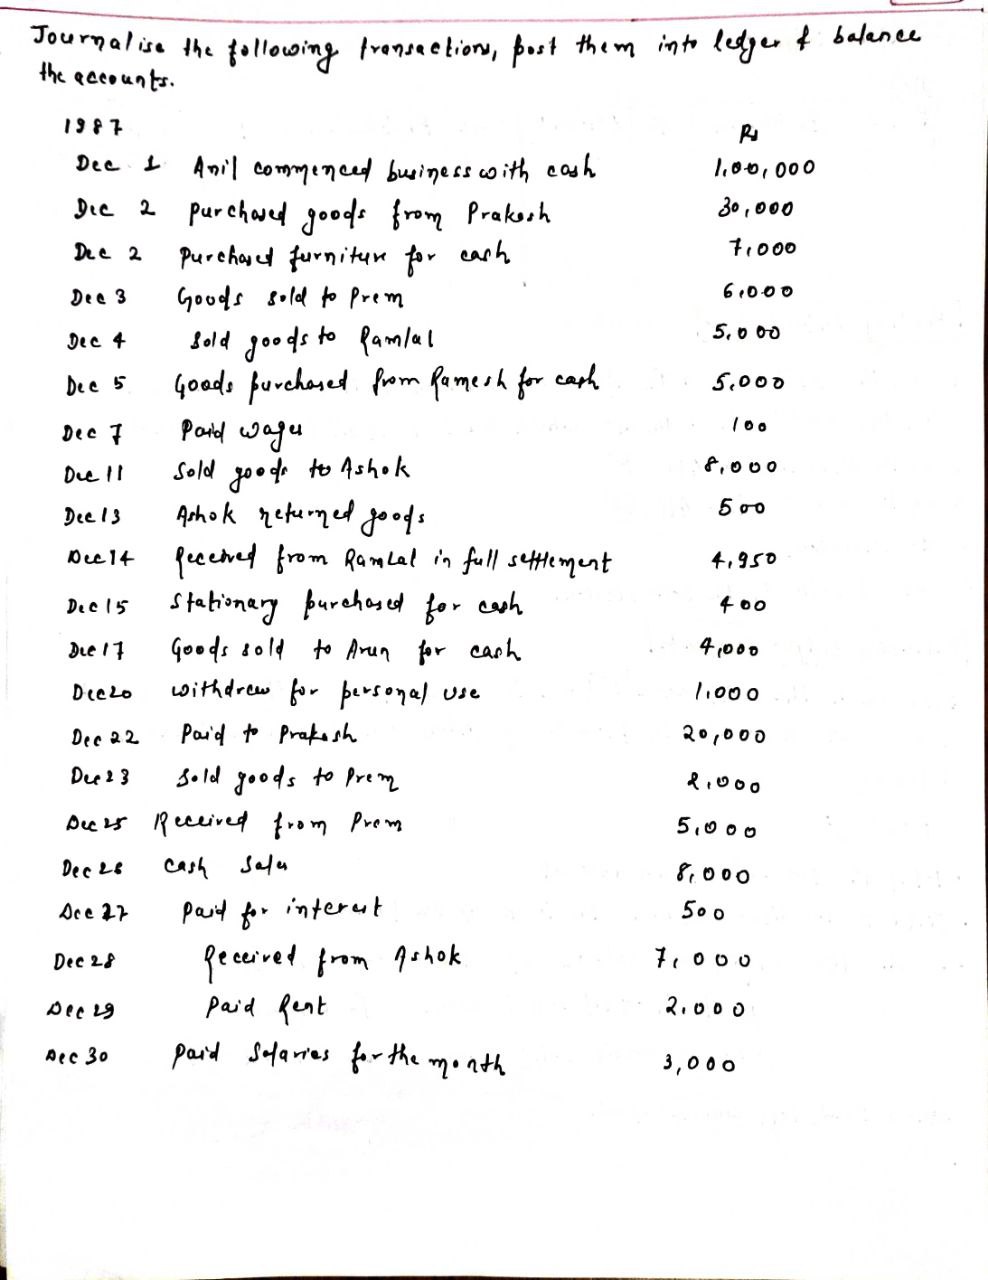 Journalise the following transactions, post them into ledger & balance
the accounts.
1987
Rs
Dec 1 Anil commenced business with cash 1,00,000
Dec 2 purchased goods from Prakash 30,000
Dec 2 Purchased furniture for cash 7,000
Dec 3 Goods sold to Prem 6,000
Dec 4 Sold goods to Ramlal 5,000
Dec 5 Goods purchased from Ramesh for cash 5,000
Dec 7 Paid wages 100
Dec 11 Sold goods to Ashok 8,000
Dec 13 Ashok returned goods 500
Dec 14 Received from Ramlal in full settlement 4,950
Dec 15 Stationary purchased for cash 400
Dec 17 Goods sold to Arun for cash 4,000
Dec 20 withdrew for personal use 1,000
Dec 22 Paid to Prakash 20,000
Dec 23 Sold goods to Prem 2,000
Dec 25 Received from Prem 5,000
Dec 26 Cash Sales 8,000
Dec 27 Paid for interest 500
Dec 28 Received from Ashok 7,000
Dec 29 Paid Rent 2,000
Dec 30 Paid Salaries for the month 3,000